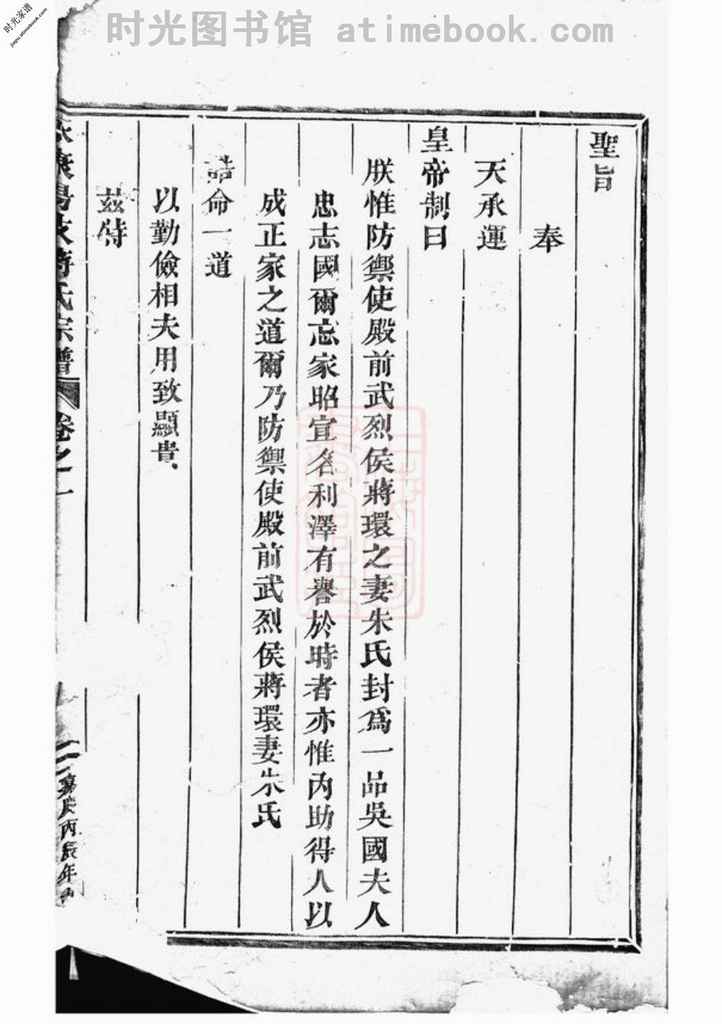 时光图书馆 atimebook.com
时光家谱
jiapu.atimebook.com
聖旨
奉
天承運
皇帝制曰
朕惟防禦使殿前武烈侯蔣環之妻朱氏封爲一品吳國夫人
忠志國爾忘家昭宣名利澤有譽於時者亦惟內助得人以
成正家之道爾乃防禦使殿前武烈侯蔣環妻朱氏
誥命一道
以勤儉相夫用致顯貴
茲特
蔣氏宗譜 卷之一
嘉慶丙辰年